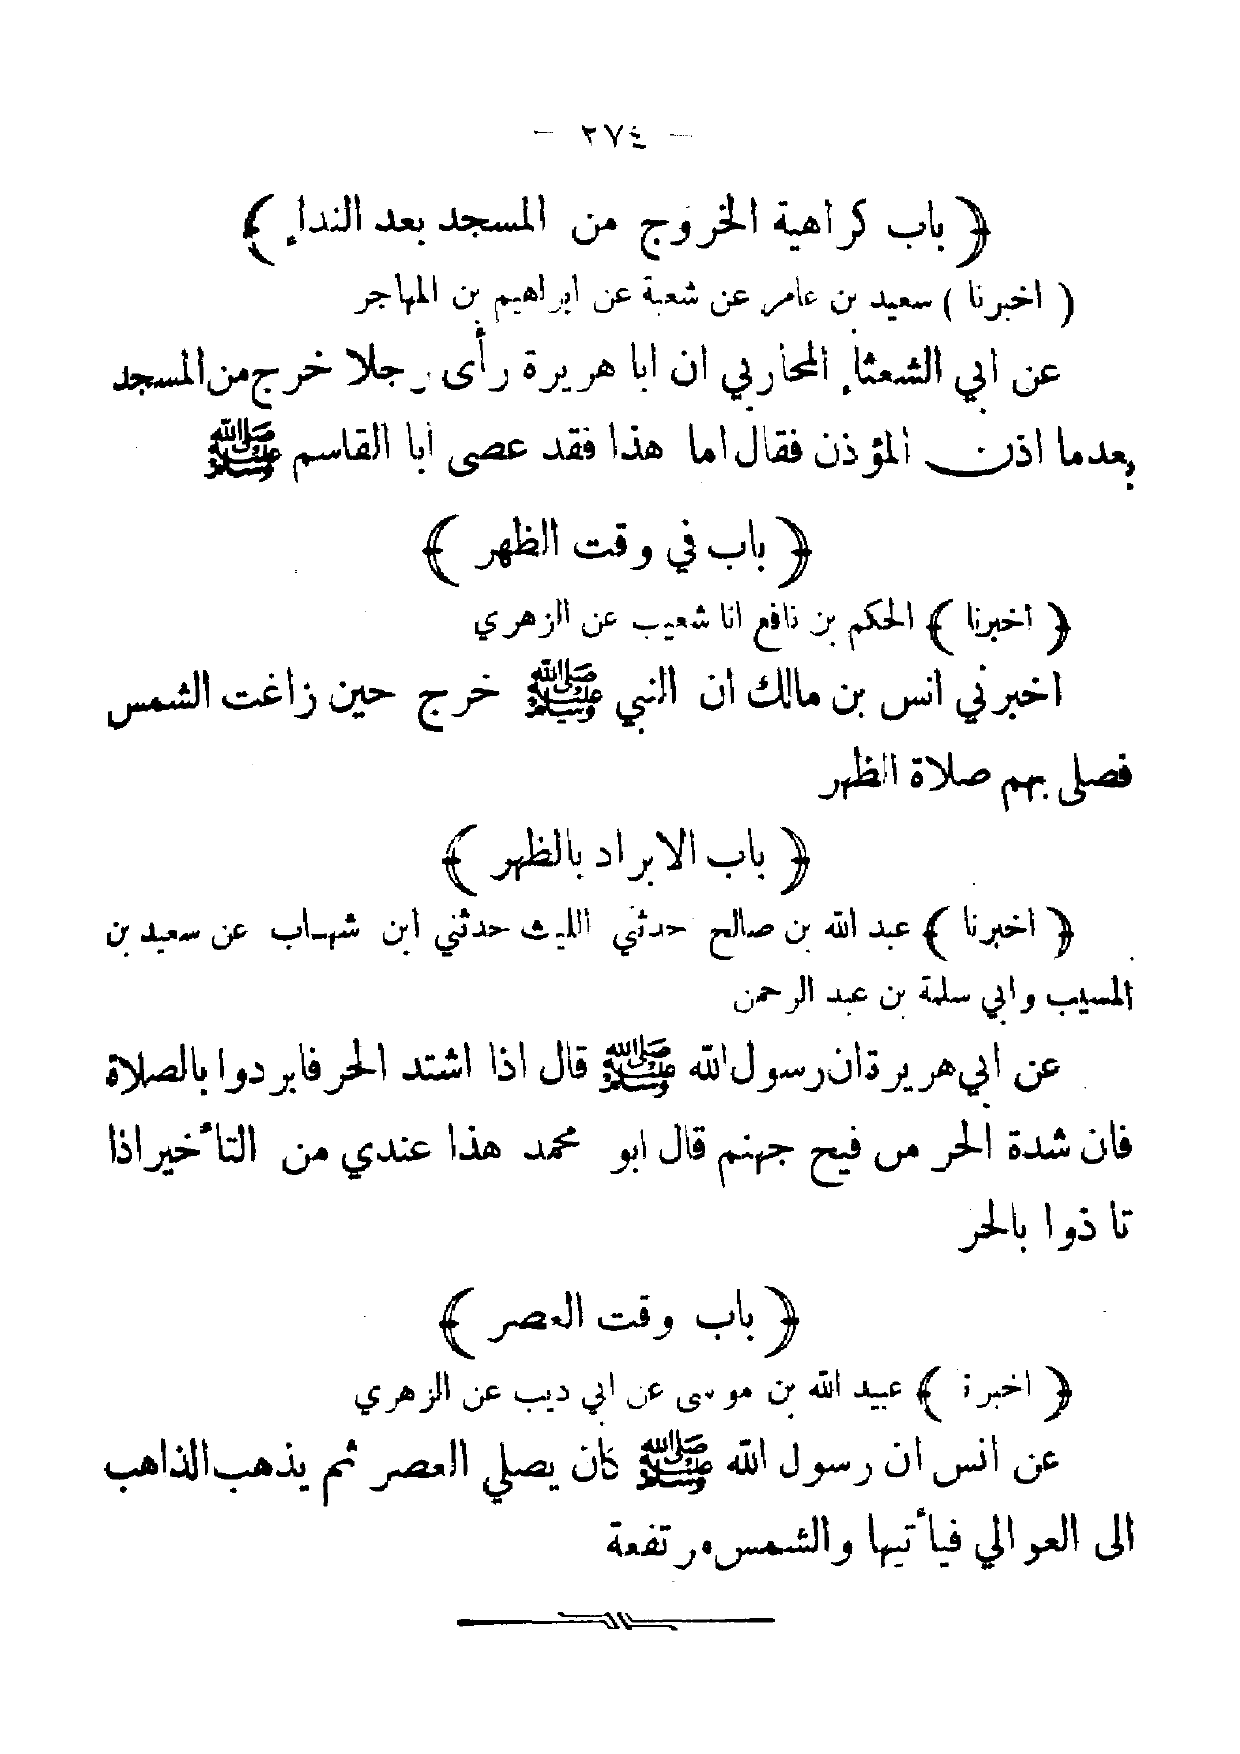 – ٢٧٤ –
﴿ باب كراهية الخروج من المسجد بعد النداء ﴾
( اخبرنا ) سعيد بن عامر عن شعبة عن ابراهيم بن المهاجر
عن ابي الشعثاء المحاربي ان ابا هريرة رأى رجلا خرج من المسجد
بعدما اذن المؤذن فقال اما هذا فقد عصى ابا القاسم ﷺ
﴿ باب في وقت الظهر ﴾
﴿ اخبرنا ﴾ الحكم بن نافع انا شعيب عن الزهري
اخبرني انس بن مالك ان النبي ﷺ خرج حين زاغت الشمس
فصلى بهم صلاة الظهر
﴿ باب الابراد بالظهر ﴾
﴿ اخبرنا ﴾ عبد الله بن صالح حدثني الليث حدثني ابن شهاب عن سعيد بن
المسيب وابي سلمة بن عبد الرحمن
عن ابي هريرة ان رسول الله ﷺ قال اذا اشتد الحر فابردوا بالصلاة
فان شدة الحر من فيح جهنم قال ابو محمد هذا عندي من التأخير اذا
تاذوا بالحر
﴿ باب وقت العصر ﴾
﴿ اخبرنا ﴾ عبيد الله بن موسى عن ابي ذيب عن الزهري
عن انس ان رسول الله ﷺ كان يصلي العصر ثم يذهب الذاهب
الى العوالي فيأتيها والشمس مرتفعة